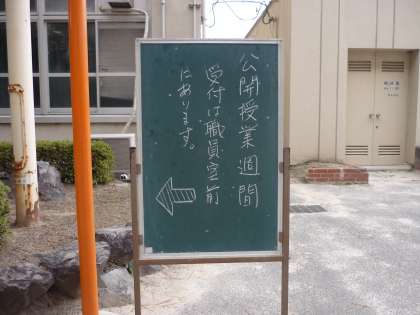 公開授業週間
受付は職員室前
にあります。